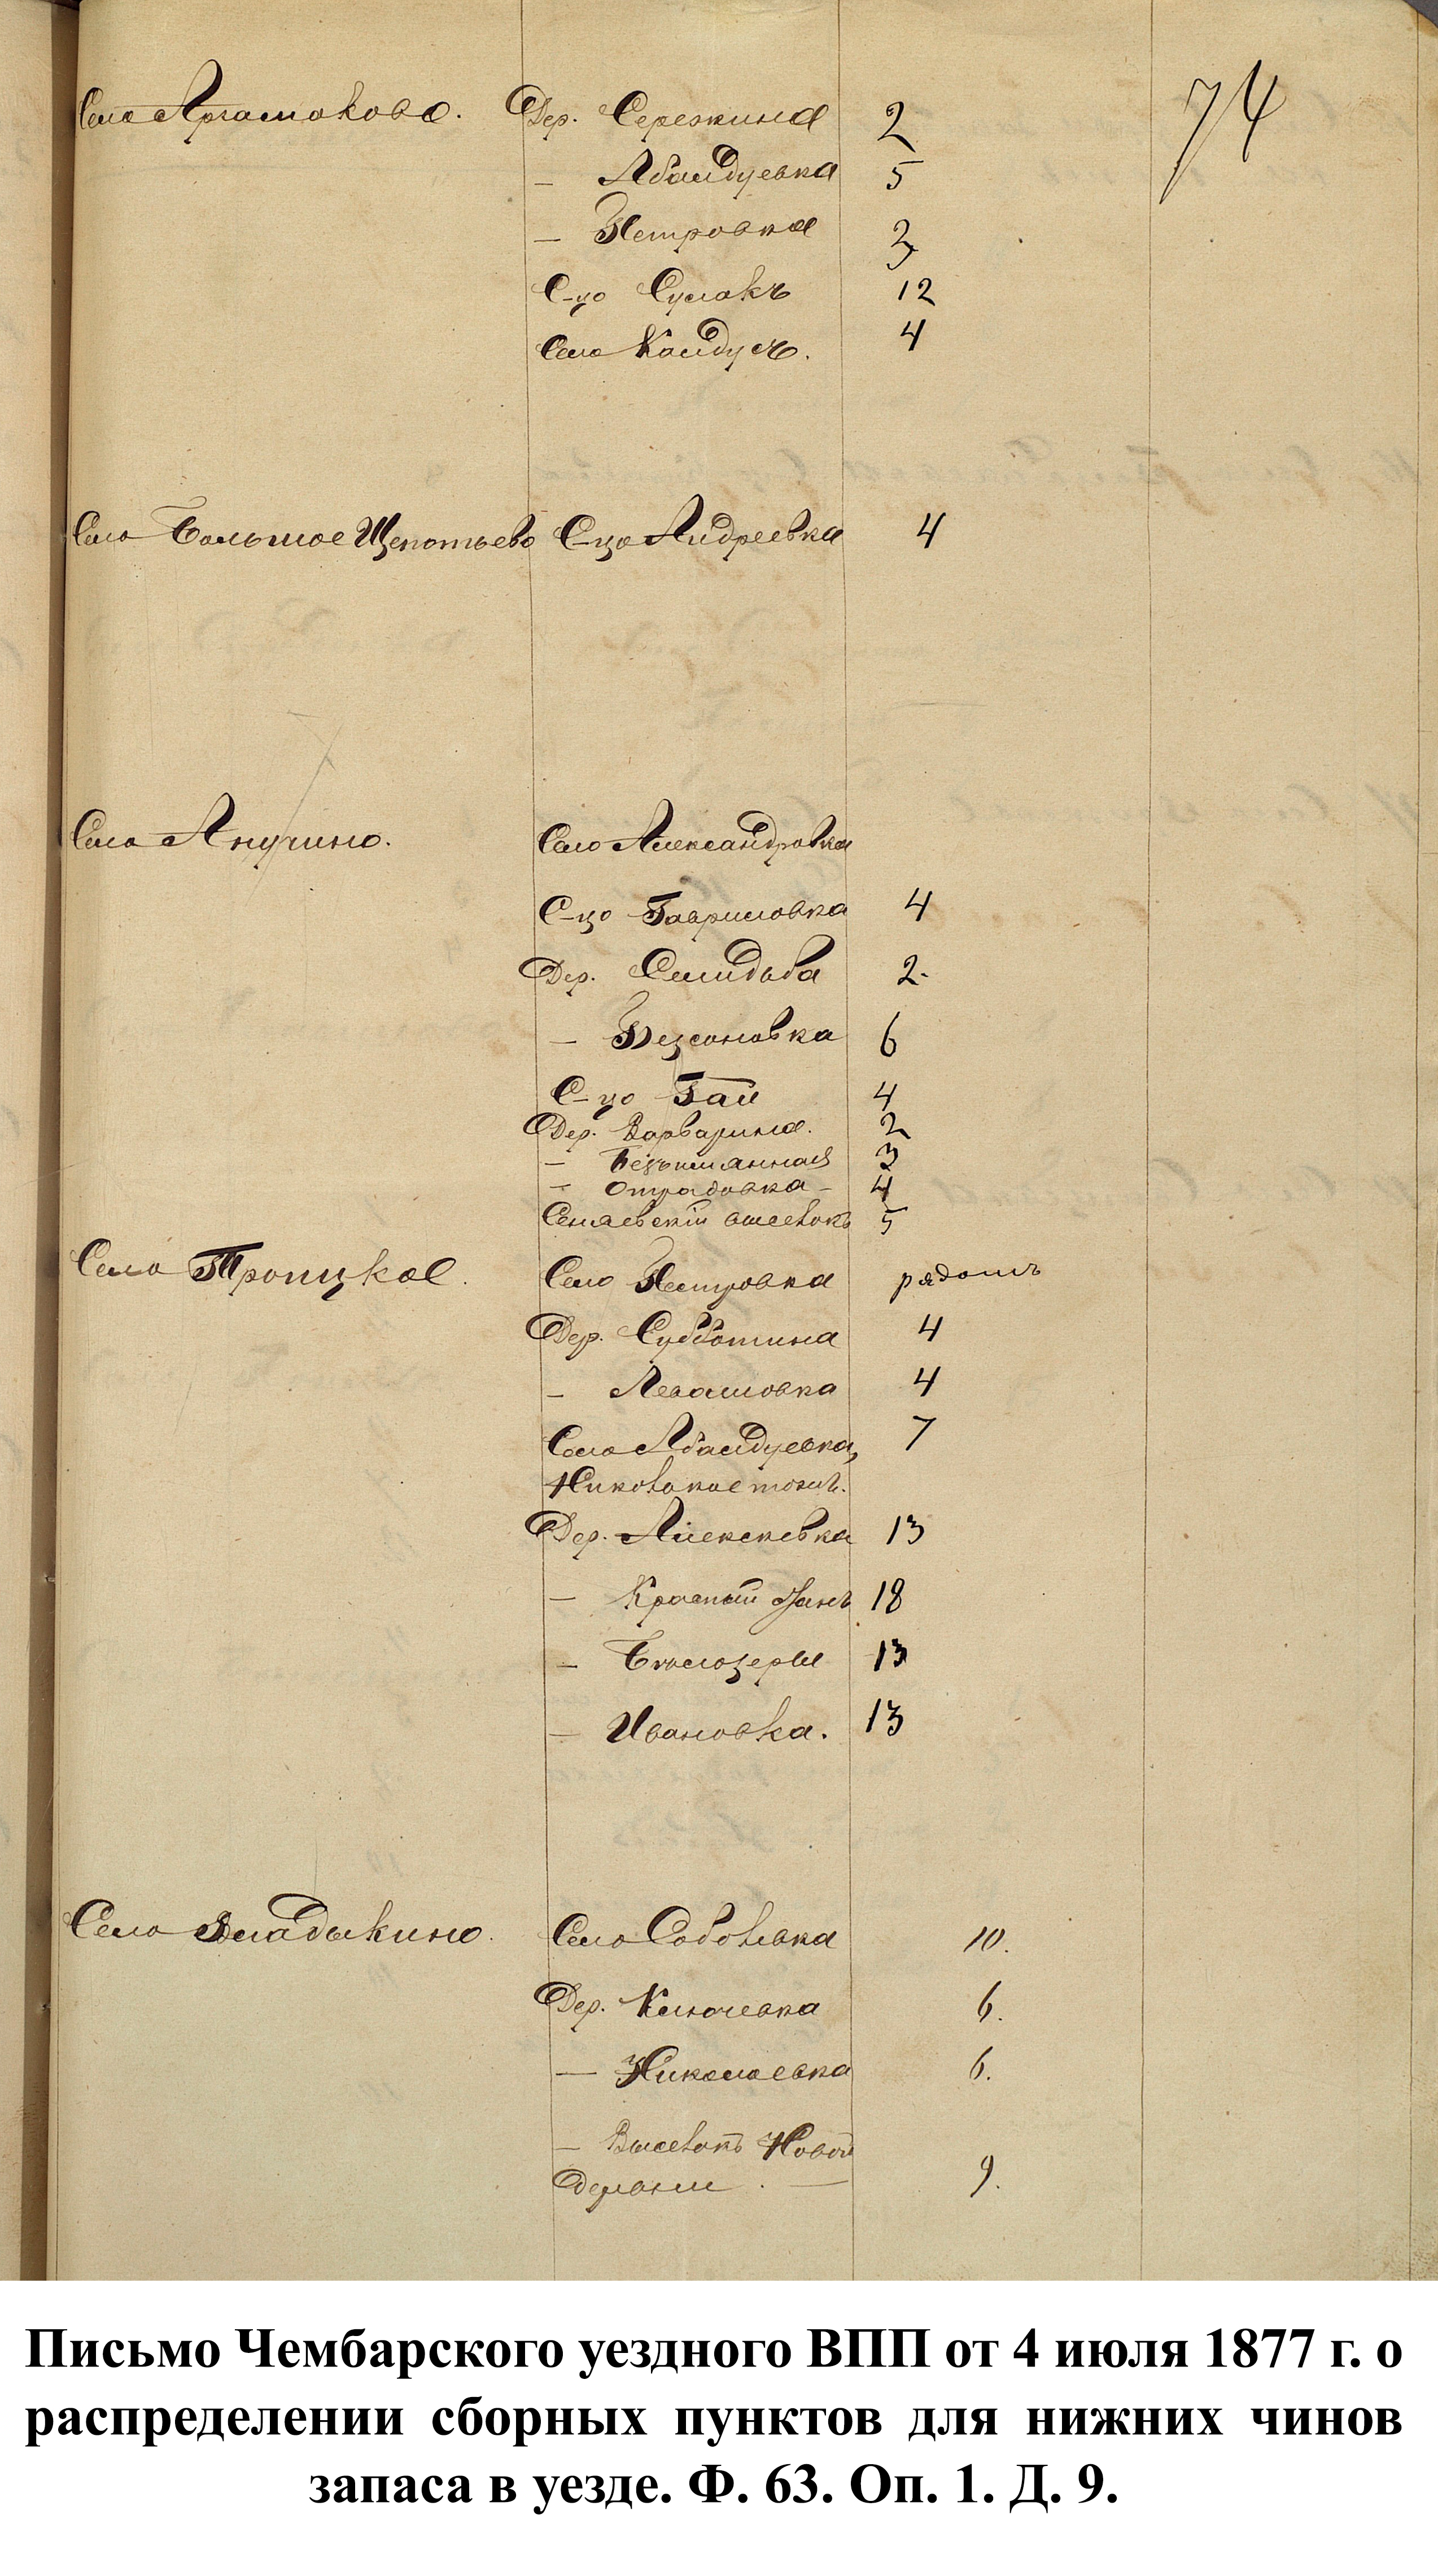 74
Село Аргамаково. Дер. Сережкина 2
— Абалдуевка 5
— Петровка 3
С-цо Сумакъ 12
Село Калдусъ. 4
Село Большое Щепотьево С-цо Андреевка 4
Село Анучино. Село Александровка
С-цо Гавриловка 4
Дер. Свидьба 2.
— Бессоновка 6
С-цо Гаи 4
Дер. Варварина. 2
— Безымянная 3
— Отрадовка — 4
выселокъ 5
Село Троицкое. Село Петровка рядомъ
Дер. Субботина 4
— Левашовка 4
Село Абалдуевка, 7
Никольское тожъ.
Дер. Алексевка 13
— Красный 18
— Белозерки 13
— Ивановка. 13
Село Владыкино. Село Соболевка 10.
Дер. Ключевка 6.
— Николаевка 6.
— Выселокъ Новой
Деревни . — 9.
Письмо Чембарского уездного ВПП от 4 июля 1877 г. о
распределении сборных пунктов для нижних чинов
запаса в уезде. Ф. 63. Оп. 1. Д. 9.